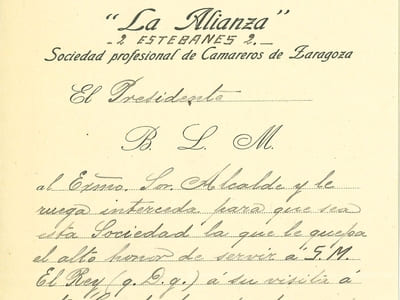 "La Alianza"
-2 ESTEBANES 2.-
Sociedad profesional de Camareros de Zaragoza
El Presidente
B. L. M.
al Exmo. Sor. Alcalde y le
ruega interceda para que sea
esta Sociedad la que le quepa
el alto honor de servir á S. M.
El Rey (q. D. g.) á su visita á